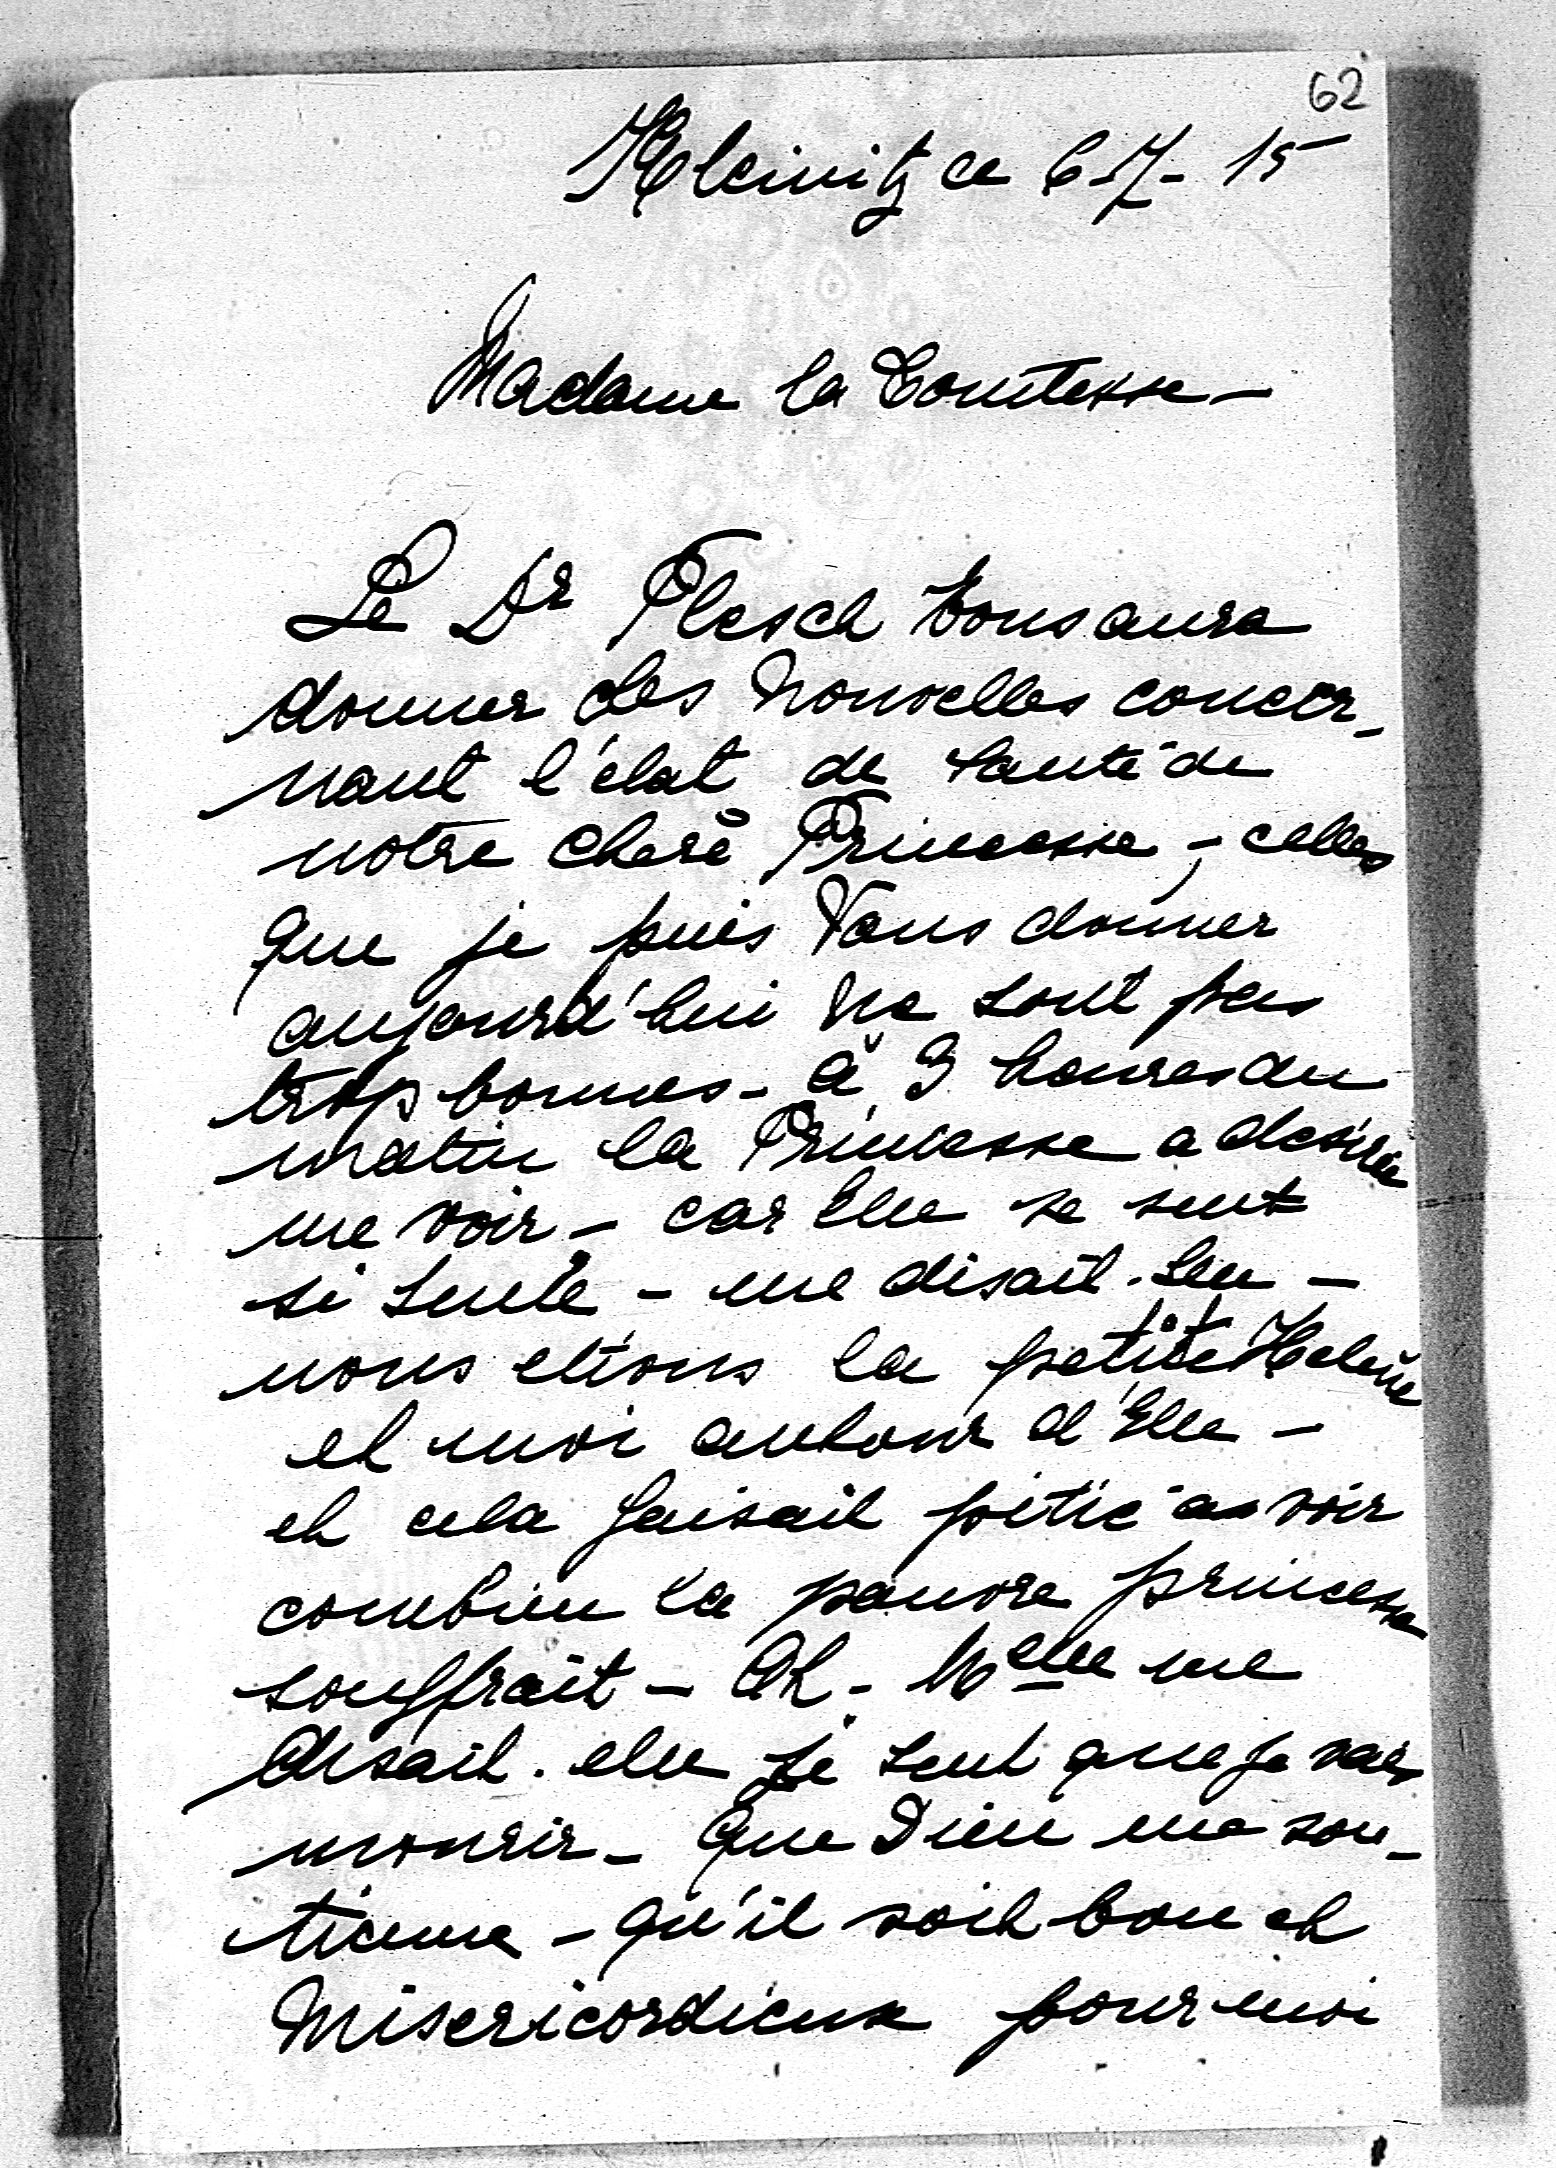 62
Kleinitz ce 6 17 - 15
Madame la Comtesse -
Le Dr Plesch Vous aura
donner des Nouvelles concer-
nant l'état de Santé de
notre chere Princesse - celles
que je puis Vous donner
aujourd'hui ne sont pas
trop bonnes - à 3 heures du
matin la Princesse a desirée
me voir - car Elle se sent
si seule - me disait-Elle -
nous etions la petite Helene
et moi autour d'Elle -
et cela faisait pitié a voir
combien la pauvre princesse
souffrait - Ah - Melle me
disait-elle je sent que je vais
mourir - Que Dieu me sou-
tienne - qu'il soit bon et
Misericordieux pour moi